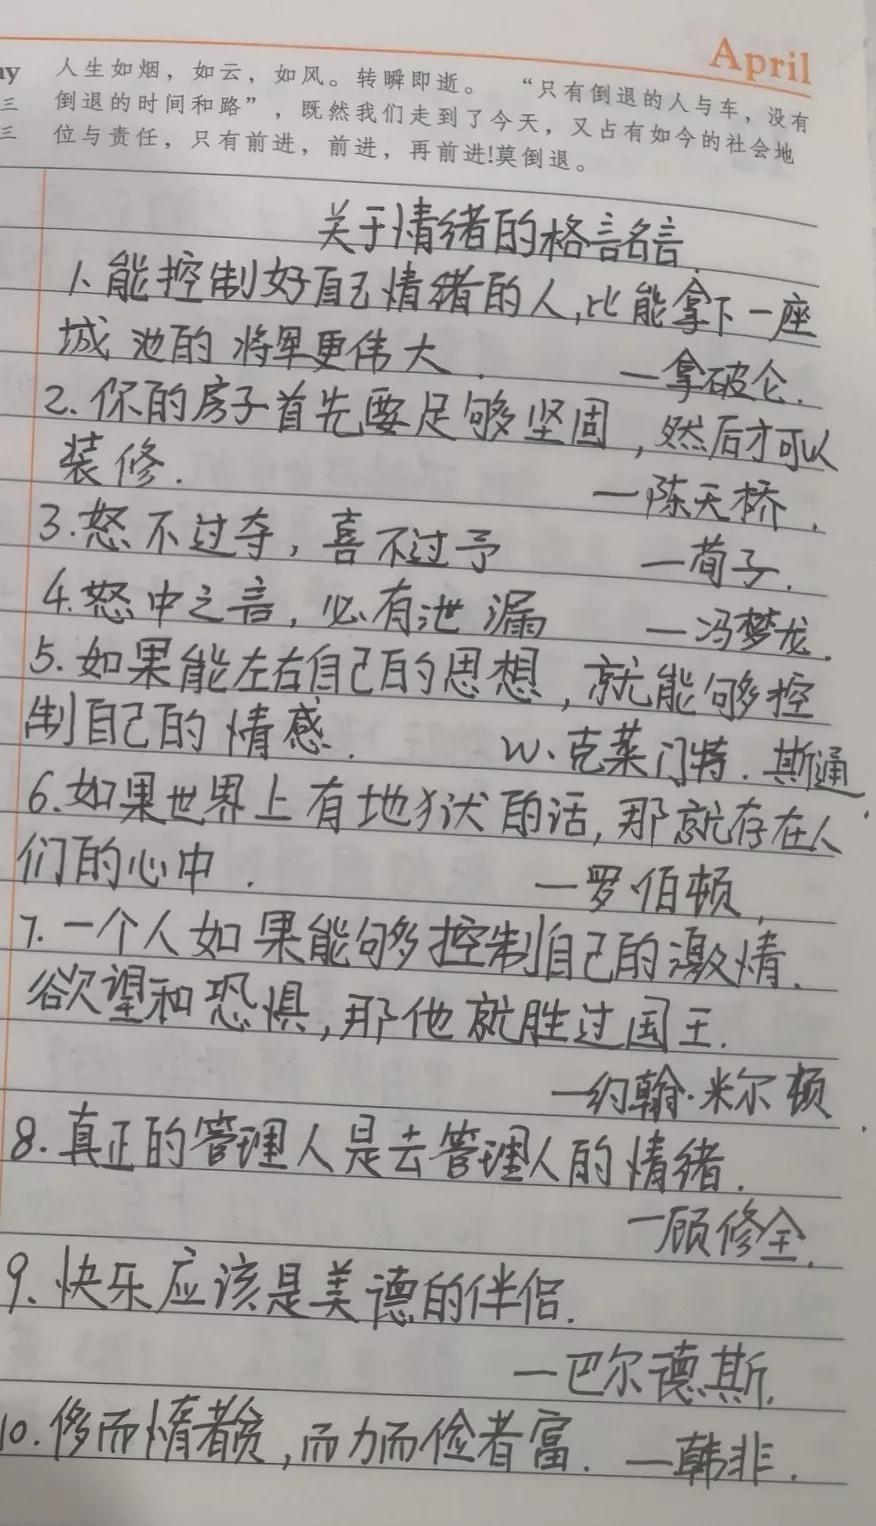 April
ay 人生如烟，如云，如风。转瞬即逝。 “只有倒退的人与车，没有
三 倒退的时间和路”，既然我们走到了今天，又占有如今的社会地
三 位与责任，只有前进，前进，再前进!莫倒退。
关于情绪的格言名言.
1、能控制好自己情绪的人,比能拿下一座
城池的将军更伟大. —拿破仑.
2. 你的房子首先要足够坚固，然后才可以
装修. —陈天桥.
3.怒不过夺，喜不过予 —荀子.
4.怒中之言，必有泄漏 —冯梦龙.
5.如果能左右自己的思想，就能够控
制自己的情感. W、克莱门特.斯通
6.如果世界上有地狱的话,那就存在人
们的心中. —罗·伯顿.
7.一个人如果能够控制自己的激情.
欲望和恐惧,那他就胜过国王.
—约翰·米尔顿
8.真正的管理人是去管理人的情绪.
—顾修全.
9、快乐应该是美德的伴侣.
—巴尔德斯.
10.侈而惰者贫,而力而俭者富. —韩非.